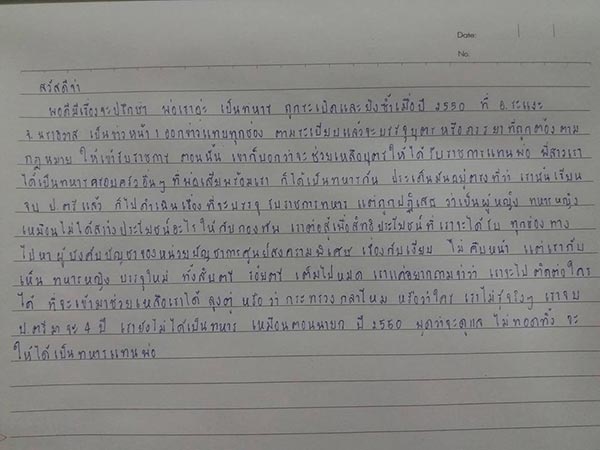 Date:
No.
สวัสดีจ้า
พอดีมีเรื่องจะปรึกษา พ่อเราอ่ะ เป็นทหาร ถูกระเบิดและยิงซ้ำเมื่อปี 2550 ที่ อ.ระแงะ
จ.นราธิวาส เป็นข่าวหน้า 1 ออกข่าวแทบทุกช่อง ตามระเบียบแล้วจะบรรจุบุตร หรือภรรยาที่ถูกต้องตาม
กฎหมาย ให้เข้ารับราชการ ตอนนั้น เขาก็บอกว่าจะช่วยเหลือบุตรให้ได้รับราชการแทนพ่อ พี่สาวเรา
ได้เป็นทหารครอบครัวอื่นๆ ที่พ่อเสียพร้อมเรา ก็ได้เป็นทหารกัน ประเด็นมันอยู่ตรงที่ว่า เรามันเรียน
จบ ป.ตรีแล้ว ก็ไปดำเนินเรื่องที่จะบรรจุ รับราชการทหาร แต่ถูกปฏิเสธ ว่าเป็นผู้หญิง ทหารหญิง
เหมือนไม่ได้สร้างประโยชน์อะไรให้กับกองทัพ เราต่อสู้เพื่อสิทธิประโยชน์ที่เราจะได้รับ ทุกช่องทาง
ไปหาผู้บังคับบัญชาของหน่วยบัญชาการศูนย์สงครามพิเศษ เรื่องกับเงียบ ไม่คืบหน้า แต่เรากับ
เห็น ทหารหญิง บรรจุใหม่ ทั้งสิบตรี ร้อยตรี เต็มไปหมด เราแค่อยากถามว่าว่า เราจะไปติดต่อใคร
ได้ ที่จะเข้ามาช่วยเหลือเราได้ ลุงตู่ หรือว่า กระทรวงกลาโหม หรือว่าใคร เราไม่รู้จริงๆ เราจบ
ป.ตรีมาจะ 4 ปี เรายังไม่ได้เป็นทหาร เหมือนตอนนายก ปี 2550 พูดว่าจะดูแล ไม่ทอดทิ้ง จะ
ให้ได้เป็นทหารแทนพ่อ